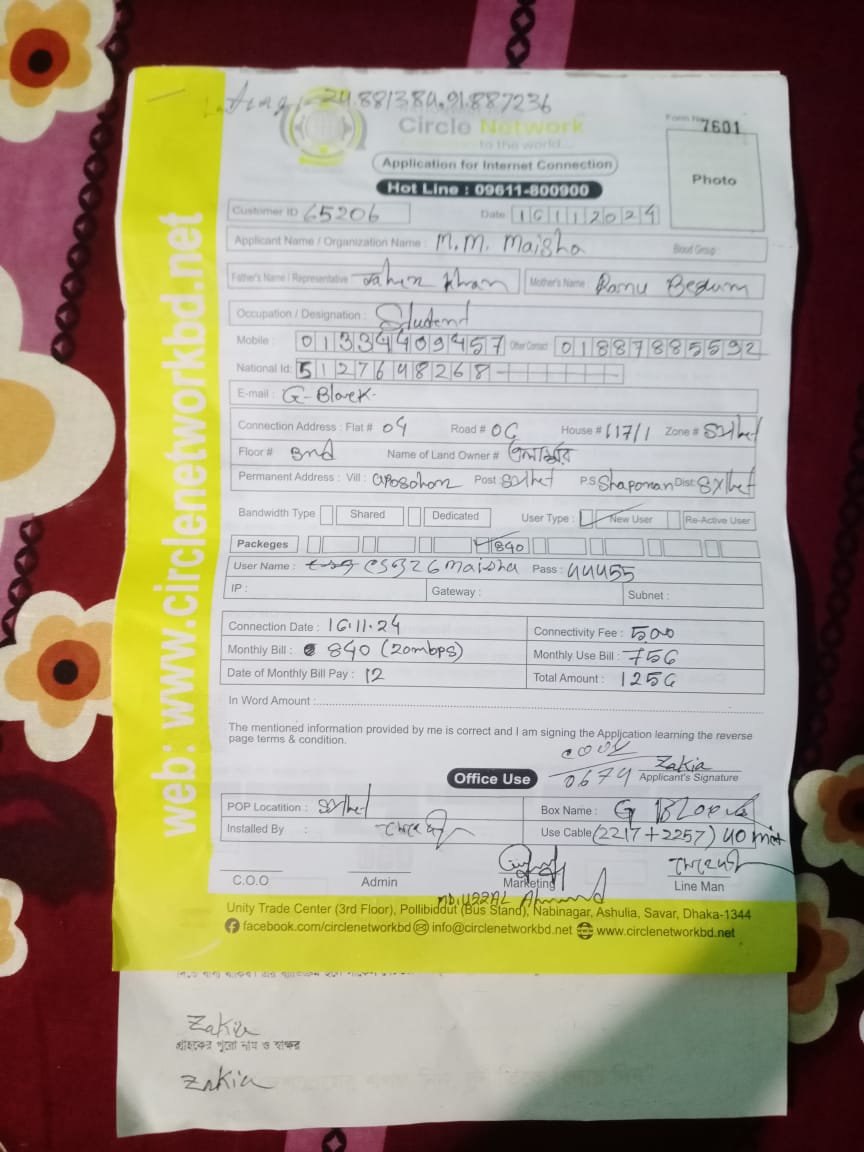 24.881384, 91.887236
Circle Network
to the world...
Form No 7601
Application for Internet Connection
Photo
Hot Line : 09611-800900
Customer ID 65206 Date 16112024
Applicant Name / Organization Name : M.M. Maisha Blood Group :
Father's Name / Representative Khan Mother's Name : Begum
Occupation / Designation : Student
Mobile : 01334409457 Other Contact 01887885592
National Id: 5127698268
E-mail : G-Block-
Connection Address : Flat # 04 Road # 06 House # 117/1 Zone # Sylhet
Floor # 3nd Name of Land Owner #
Permanent Address : Vill : Post Sylhet P.S Dist: Sylhet
Bandwidth Type Shared Dedicated User Type : New User Re-Active User
Packeges 840
User Name : Pass : 44455
IP : Gateway : Subnet :
Connection Date : 16.11.24 Connectivity Fee : 500
Monthly Bill : 840 (20mbps) Monthly Use Bill : 756
Date of Monthly Bill Pay : 12 Total Amount : 1256
In Word Amount :
The mentioned information provided by me is correct and I am signing the Application learning the reverse
page terms & condition.
0679
Zakia
Office Use Applicant's Signature
POP Locatition : Sylhet Box Name : G Block
Installed By : Use Cable (2217+2257) 40 mit
C.O.O Admin Marketing Line Man
MD: UZZAL Ahmand
Unity Trade Center (3rd Floor), Pollibiddut (Bus Stand), Nabinagar, Ashulia, Savar, Dhaka-1344
facebook.com/circlenetworkbd info@circlenetworkbd.net www.circlenetworkbd.net
web: www.circlenetworkbd.net
Zakia
গ্রাহকের পুরো নাম ও স্বাক্ষর
Zakia